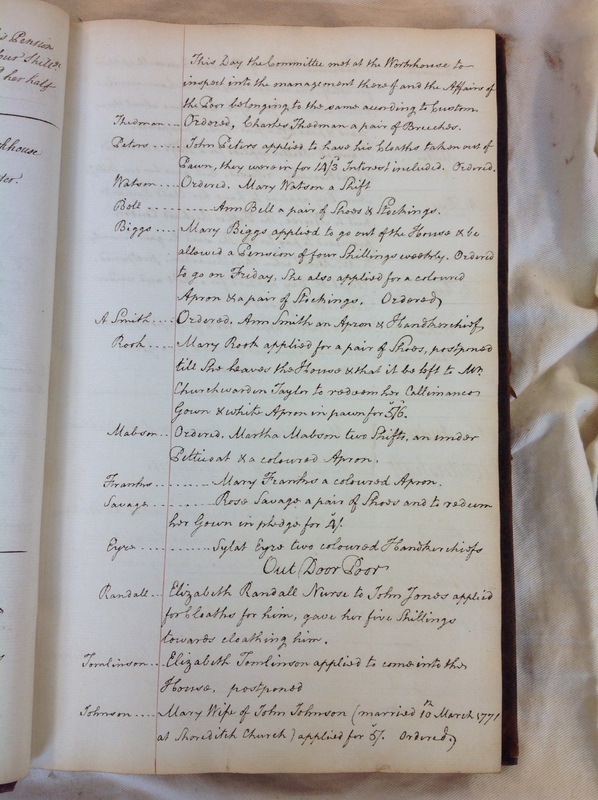 s Pension
four Shillgs
d her half
khouse
ter.
This Day the Committee met at the Workhouse to
inspect into the management thereof and the Affairs of
the Poor belonging to the same acording to Custom
Thedman .. Ordered, Charles Thedman a pair of Breeches.
Peters .... John Peters applied to have his Cloaths taken out of
Pawn, they were in for 14/3 Interest included. Ordered.
Watson .... Ordered. Mary Watson a Shift
Bell .......... Ann Bell a pair of Shoes & Stockings.
Biggs .... Mary Biggs applied to go out of the House & be
allowed a Pension of four Shillings weekly. Ordered
to go on Friday. She also applied for a coloured
Apron & a pair of Stockings. Ordered
A Smith .... Ordered. Ann Smith an Apron & Handkerchief
Rook .... Mary Rook applied for a pair of Shoes, postponed
till She leaves the House & that it be left to Mr.
Churchwarden Taylor to redeem her Callimanco
Gown & white Apron in pawn for 5/6.
Mabson .. Ordered. Martha Mabson two Shifts, an under
Petticoat & a coloured Apron.
Franks ........... Mary Franks a coloured Apron.
Savage ........... Rose Savage a pair of Shoes and to redeem
her Gown in pledge for 4/.
Eyre ............ Sylat Eyre two coloured Handkerchiefs
Out Door Poor
Randall .. Elizabeth Randall Nurse to John Jones applied
for Cloaths for him, gave her five Shillings
towards cloathing him.
Tomlinson .. Elizabeth Tomlinson applied to come into the
House. postponed
Johnson .... Mary Wife of John Johnson (married 10 March 1771
at Shoreditch Church) applied for 5/. Ordered